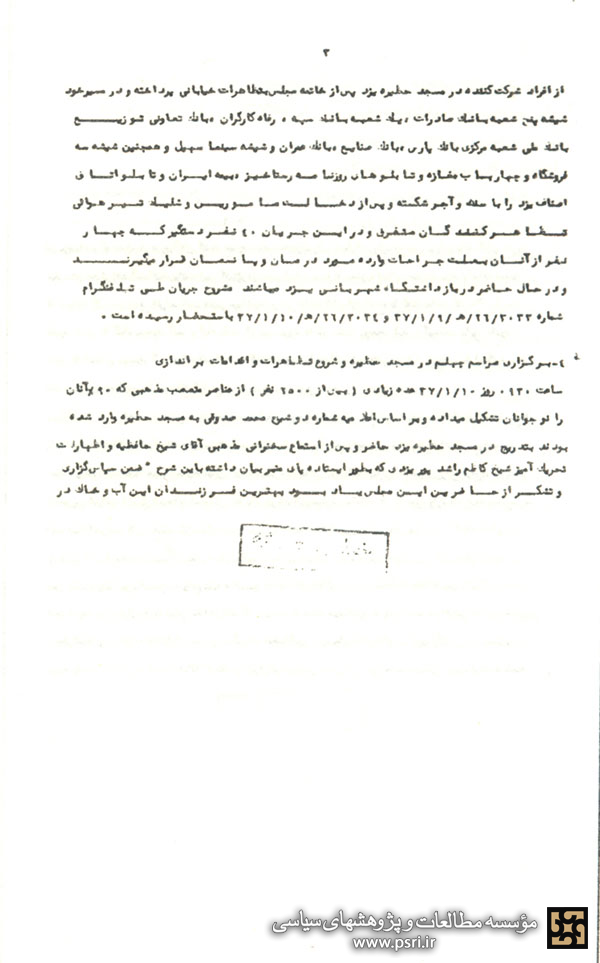 ۳
از افراد شرکت کننده در مسجد حظیره یزد پس از خاتمه مجلس بتظاهرات خیابانی پرداخته و در مسیر خود
شیشه پنج شعبه بانک صادرات ، یک شعبه بانک سپه ، رفاه کارگران ، بانک تعاونی توزیع
بانک ملی شعبه مرکزی بانک پارس ، بانک صنایع ، بانک عمران و شیشه سینما سهیل و همچنین شیشه سه
فروشگاه و چهار باب مغازه و تابلوهای روزنامه رستاخیز ، بیمه ایران و تابلو اتاق
اصناف یزد را با سنگ و آجر شکسته و پس از دخالت مامورین و شلیک تیر هوائی
تظاهرکنندگان متفرق و در این جریان ۴۰ نفر دستگیر که چهار
نفر از آنان بعلت جراحات وارده مورد درمان و پانسمان قرار میگیرند
و در حال حاضر در بازداشتگاه شهربانی یزد میباشند مشروح جریان طی تلفنگرام
شماره ۲۶/۳۰۳۳/ه‍ ۳۷/۱/۹ و ۲۶/۳۰۳۴/ه‍ ۳۷/۱/۱۰ باستحضار رسیده است .
۴- برگزاری مراسم چهلم در مسجد حظیره و شروع تظاهرات و اقدامات براندازی
ساعت ۰۹۳۰ روز ۳۷/۱/۱۰ عده زیادی ( بیش از ۲۵۰۰ نفر ) از عناصر متعصب مذهبی که ۹۰٪ آنان
را نوجوانان تشکیل میداده و بر اساس اعلامیه شماره دو شیخ محمد صدوقی به مسجد حظیره وارد شده
بودند بتدریج در مسجد حظیره یزد حاضر و پس از استماع سخنرانی مذهبی آقای شیخ حافظیه و اظهارات
تحریک آمیز شیخ کاظم راشد پور یزدی که بطور ایستاده پای منبر بیان داشته باین شرح " ضمن سپاس گزاری
و تشکر از حاضرین این مجلس یاد بود بهترین فرزندان این آب و خاک در
مؤسسه مطالعات و پژوهشهای سیاسی
www.psri.ir